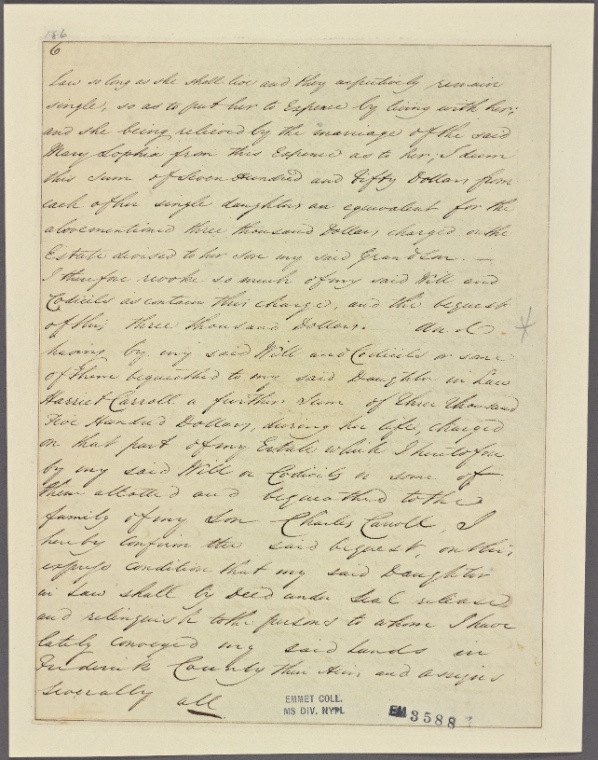 186
6
Law so long as she shall live and they respectively remain
single, so as to put her to Expence by living with her;
and she being relieved by the marriage of the said
Mary Sophia from this Expence as to her, I deem
this Sum of Seven Hundred and Fifty Dollars from
each of her single daughters an equivalent for the
abovementioned three thousand Dollars charged on the
Estate devised to her Son my said Grand Son. —
I therefore revoke so much of my said Will and
Codicils as contain this charge, and the bequest
of this three thousand Dollars. And
having by my said Will and Codicils or some
of them bequeathed to my said Daughter in Law
Harriet Carroll a further Sum of three thousand
Five Hundred Dollars, during her life, charged
on that part of my Estate which I heretofore
by my said Will or Codicils or some of
them allotted and bequeathed to the
family of my Son Charles Carroll, I
hereby confirm the said bequest, on this
express condition that my said Daughter
in Law shall by Deed under Seal release
and relinquish to the persons to whom I have
lately conveyed my said lands in
Frederick County their heirs and assigns
severally all
EMMET COLL.
MS DIV. NYPL
EM 3588